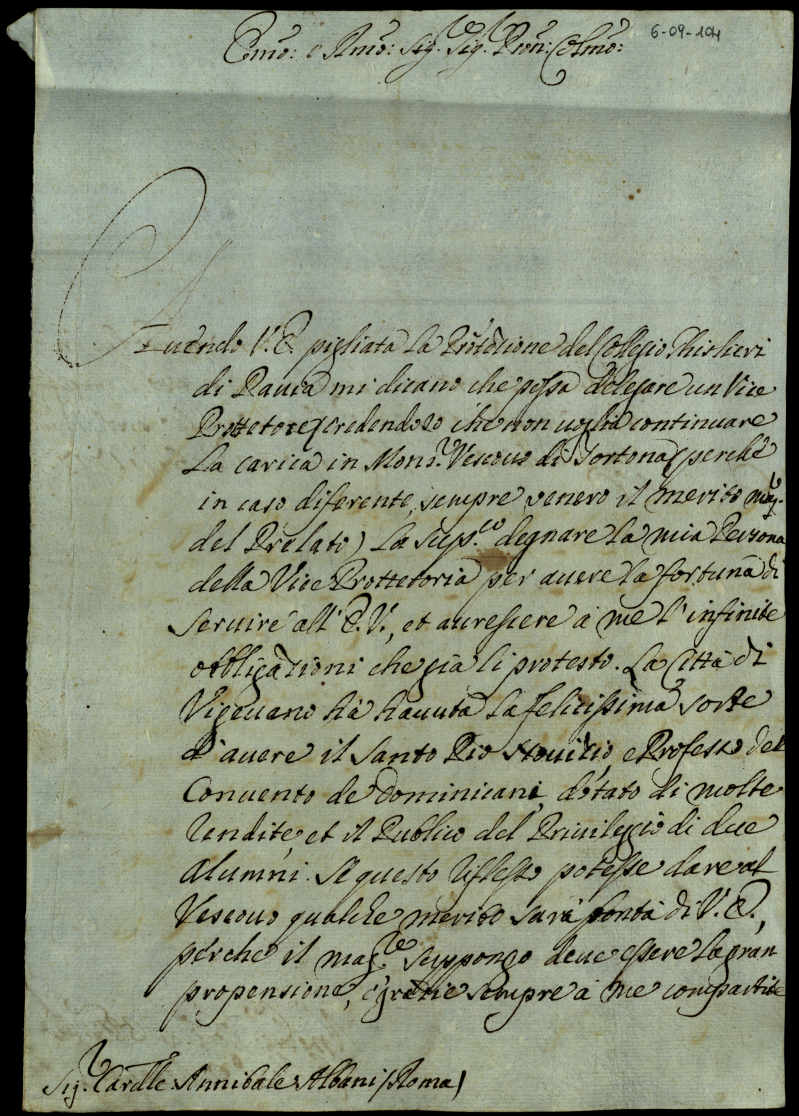 Emo: e Rmo: Sig.r Sig.r Pron: Colmo:
6-09-104
Avendo V. E. pigliata la Prottezione del Collegio Ghislieri
di Pavia mi dicano che possa delegare un Vice
Prottetore (credendolo che non voglia continuare
la carica in Mons.r Vescovo di Tortona (perche
in caso diferente, sempre venero il merito mag.r
del Prelato) La sup.co degnare la mia Persona
della Vice Prottetoria per avere la fortuna di
servire all' E. V., et acrescere à me l'infinite
obbligazioni che già li protesto. La Città di
Vigevano hà havuta la felicissima sorte
d'avere il Santo Pio Novizio, e Professo del
Convento de Dominicani, dotato di molte
rendite, et il Publico del Privileggio di due
Alumni. Se questo riflesso potesse dare al
Vescovo qualche merito sarà bontà di V. E.,
perche il mag.re suppongo deve essere la gran
propensione, e grazie sempre à me compartite
Sig.r Cardle: Annibale Albani (Roma)